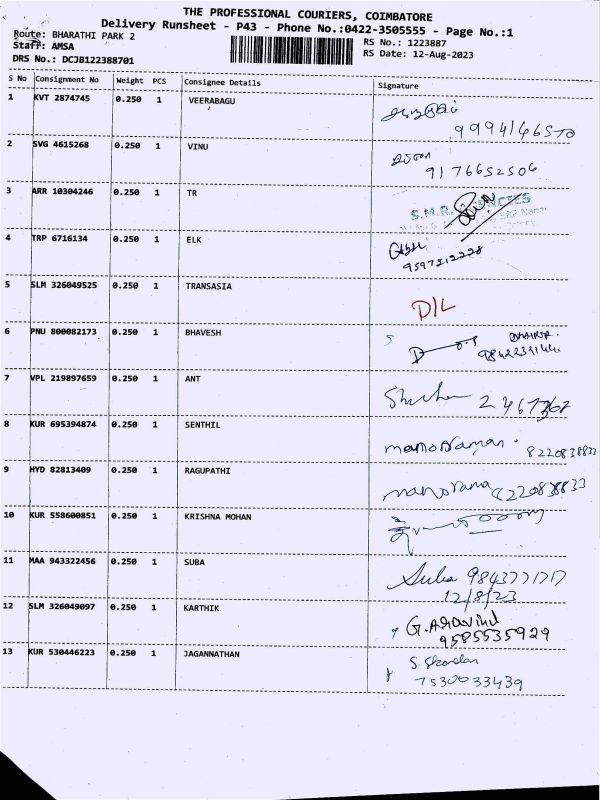 THE PROFESSIONAL COURIERS, COIMBATORE
Delivery Runsheet - P43 - Phone No.:0422-3505555 - Page No.:1
Route: BHARATHI PARK 2
RS No.: 1223887
Staff: AMSA
RS Date: 12-Aug-2023
DRS No.: DCJB122388701
S No Consignment No Weight PCS Consignee Details Signature
1 KVT 2874745 0.250 1 VEERABAGU
9994146570
2 SVG 4615268 0.250 1 VINU
9176652506
3 ARR 10304246 0.250 1 TR
S.M.R.
4 TRP 6716134 0.250 1 ELK
5 SLM 326049525 0.250 1 TRANSASIA
D/L
6 PNU 800082173 0.250 1 BHAVESH
7 VPL 219897659 0.250 1 ANT
8 KUR 695394874 0.250 1 SENTHIL
manoraman. 8220838833
9 HYD 82813409 0.250 1 RAGUPATHI
manorama 8220838833
10 KUR 558600851 0.250 1 KRISHNA MOHAN
11 MAA 943322456 0.250 1 SUBA
Suba 9843771717
12/8/23
12 SLM 326049097 0.250 1 KARTHIK
G. Aravind
9585535929
13 KUR 530446223 0.250 1 JAGANNATHAN
7530033439